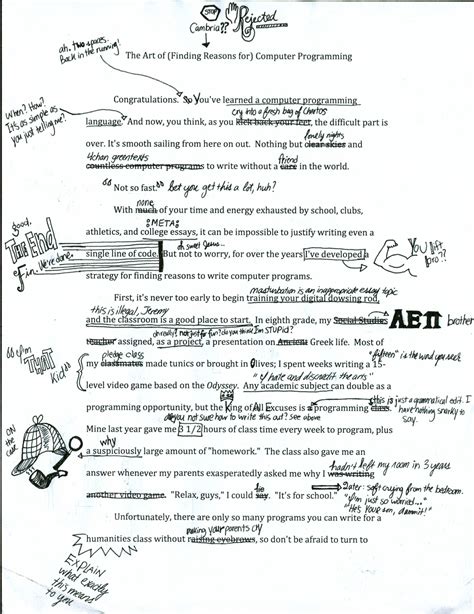 STOP
My Rejected
Cambria??
ah. two spaces.
Back in the running!
The Art of (Finding Reasons for) Computer Programming
When? How?
It's as simple as
you just telling me?
Congratulations. So You've learned a computer programming
cry into a fresh bag of Cheetos
language. And now, you think, as you kick back your feet, the difficult part is
lonely nights
over. It's smooth sailing from here on out. Nothing but clear skies and
4chan greentexts
friend
countless computer programs to write without a care in the world.
Not so fast." bet you get this a lot, huh?
none
With much of your time and energy exhausted by school, clubs,
:META:
athletics, and college essays, it can be impossible to justify writing even a
good.
THE End
Fin. We're done.
oh sweet Jesus...
single line of code. But not to worry, for over the years I've developed a
YOU lift, bro??
strategy for finding reasons to write computer programs.
masturbation is an inappropriate essay topic
First, it's never too early to begin training your digital dowsing rod,
this is illegal, Jeremy
and the classroom is a good place to start. In eighth grade, my Social Studies
ΑΕΠ brother
oh really? not just for fun? do you think I'm STUPID?
teacher assigned, as a project, a presentation on Ancient Greek life. Most of
"fifteen" is the word you seek
pledge class
my classmates made tunics or brought in Olives; I spent weeks writing a 15-
"elfin"
THAT
Kid
"I hate and discredit the arts"
level video game based on the Odyssey. Any academic subject can double as a
programming opportunity, but the King of All Excuses is a programming class.
this is just a grammatical edit. I have nothing snarky to say.
do you not sure how to write this out? See above
Mine last year gave me 3 1/2 hours of class time every week to program, plus
on the case
why
a suspiciously large amount of "homework." The class also gave me an
hadn't left my room in 3 years
answer whenever my parents exasperatedly asked me why I was writing
later: soft crying from the bedroom.
another video game. "Relax, guys," I could say. "It's for school."
"I'm just so worried..."
"He's YOUR son, dammit!"
Unfortunately, there are only so many programs you can write for a
making your parents cry
humanities class without raising eyebrows, so don't be afraid to turn to
EXPLAIN
what exactly
this means
to you